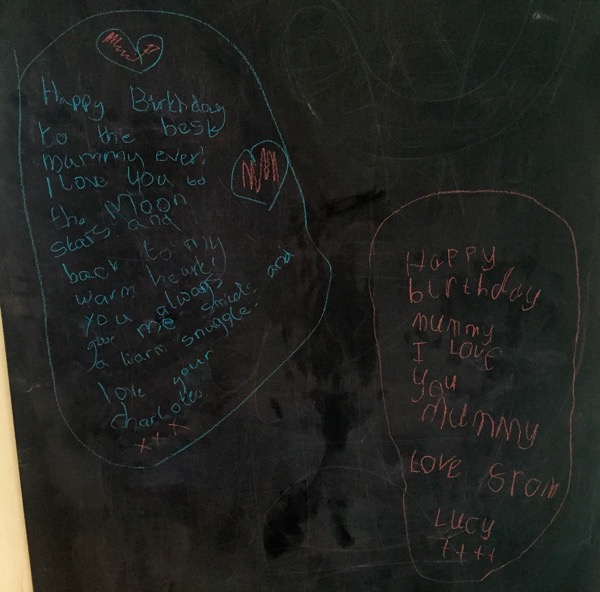 Happy Birthday
to the best
mummy ever!
I love you to
the Moon
stars and
back to my
warm heart!
you always
give me smiles and
a warm snuggle.
love your
Charlotte
x x x
Happy
birthday
mummy
I love
you
mummy
Love from
Lucy
++++